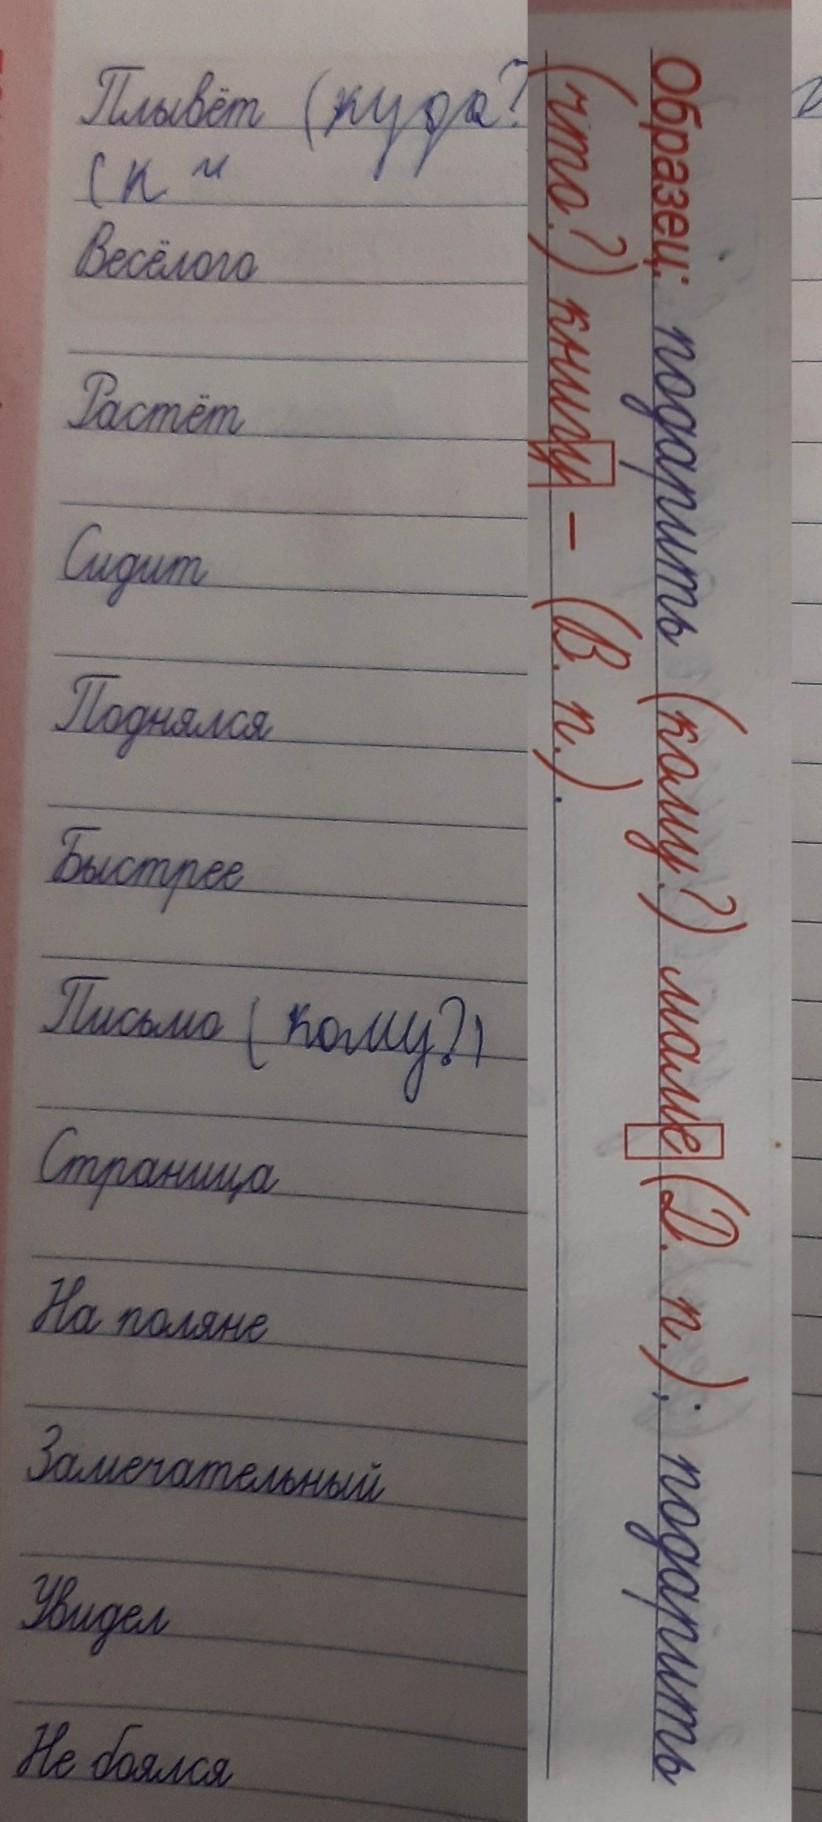 Плывёт (куда?
(к
Весёлого
Растёт
Сидит
Поднялся
Быстрее
Письмо (кому?)
Страница
На поляне
Замечательный
Увидел
Не боялся
Образец: подарить (кому?) маме (Д. п.); подарить
(что?) книгу – (В. п.).